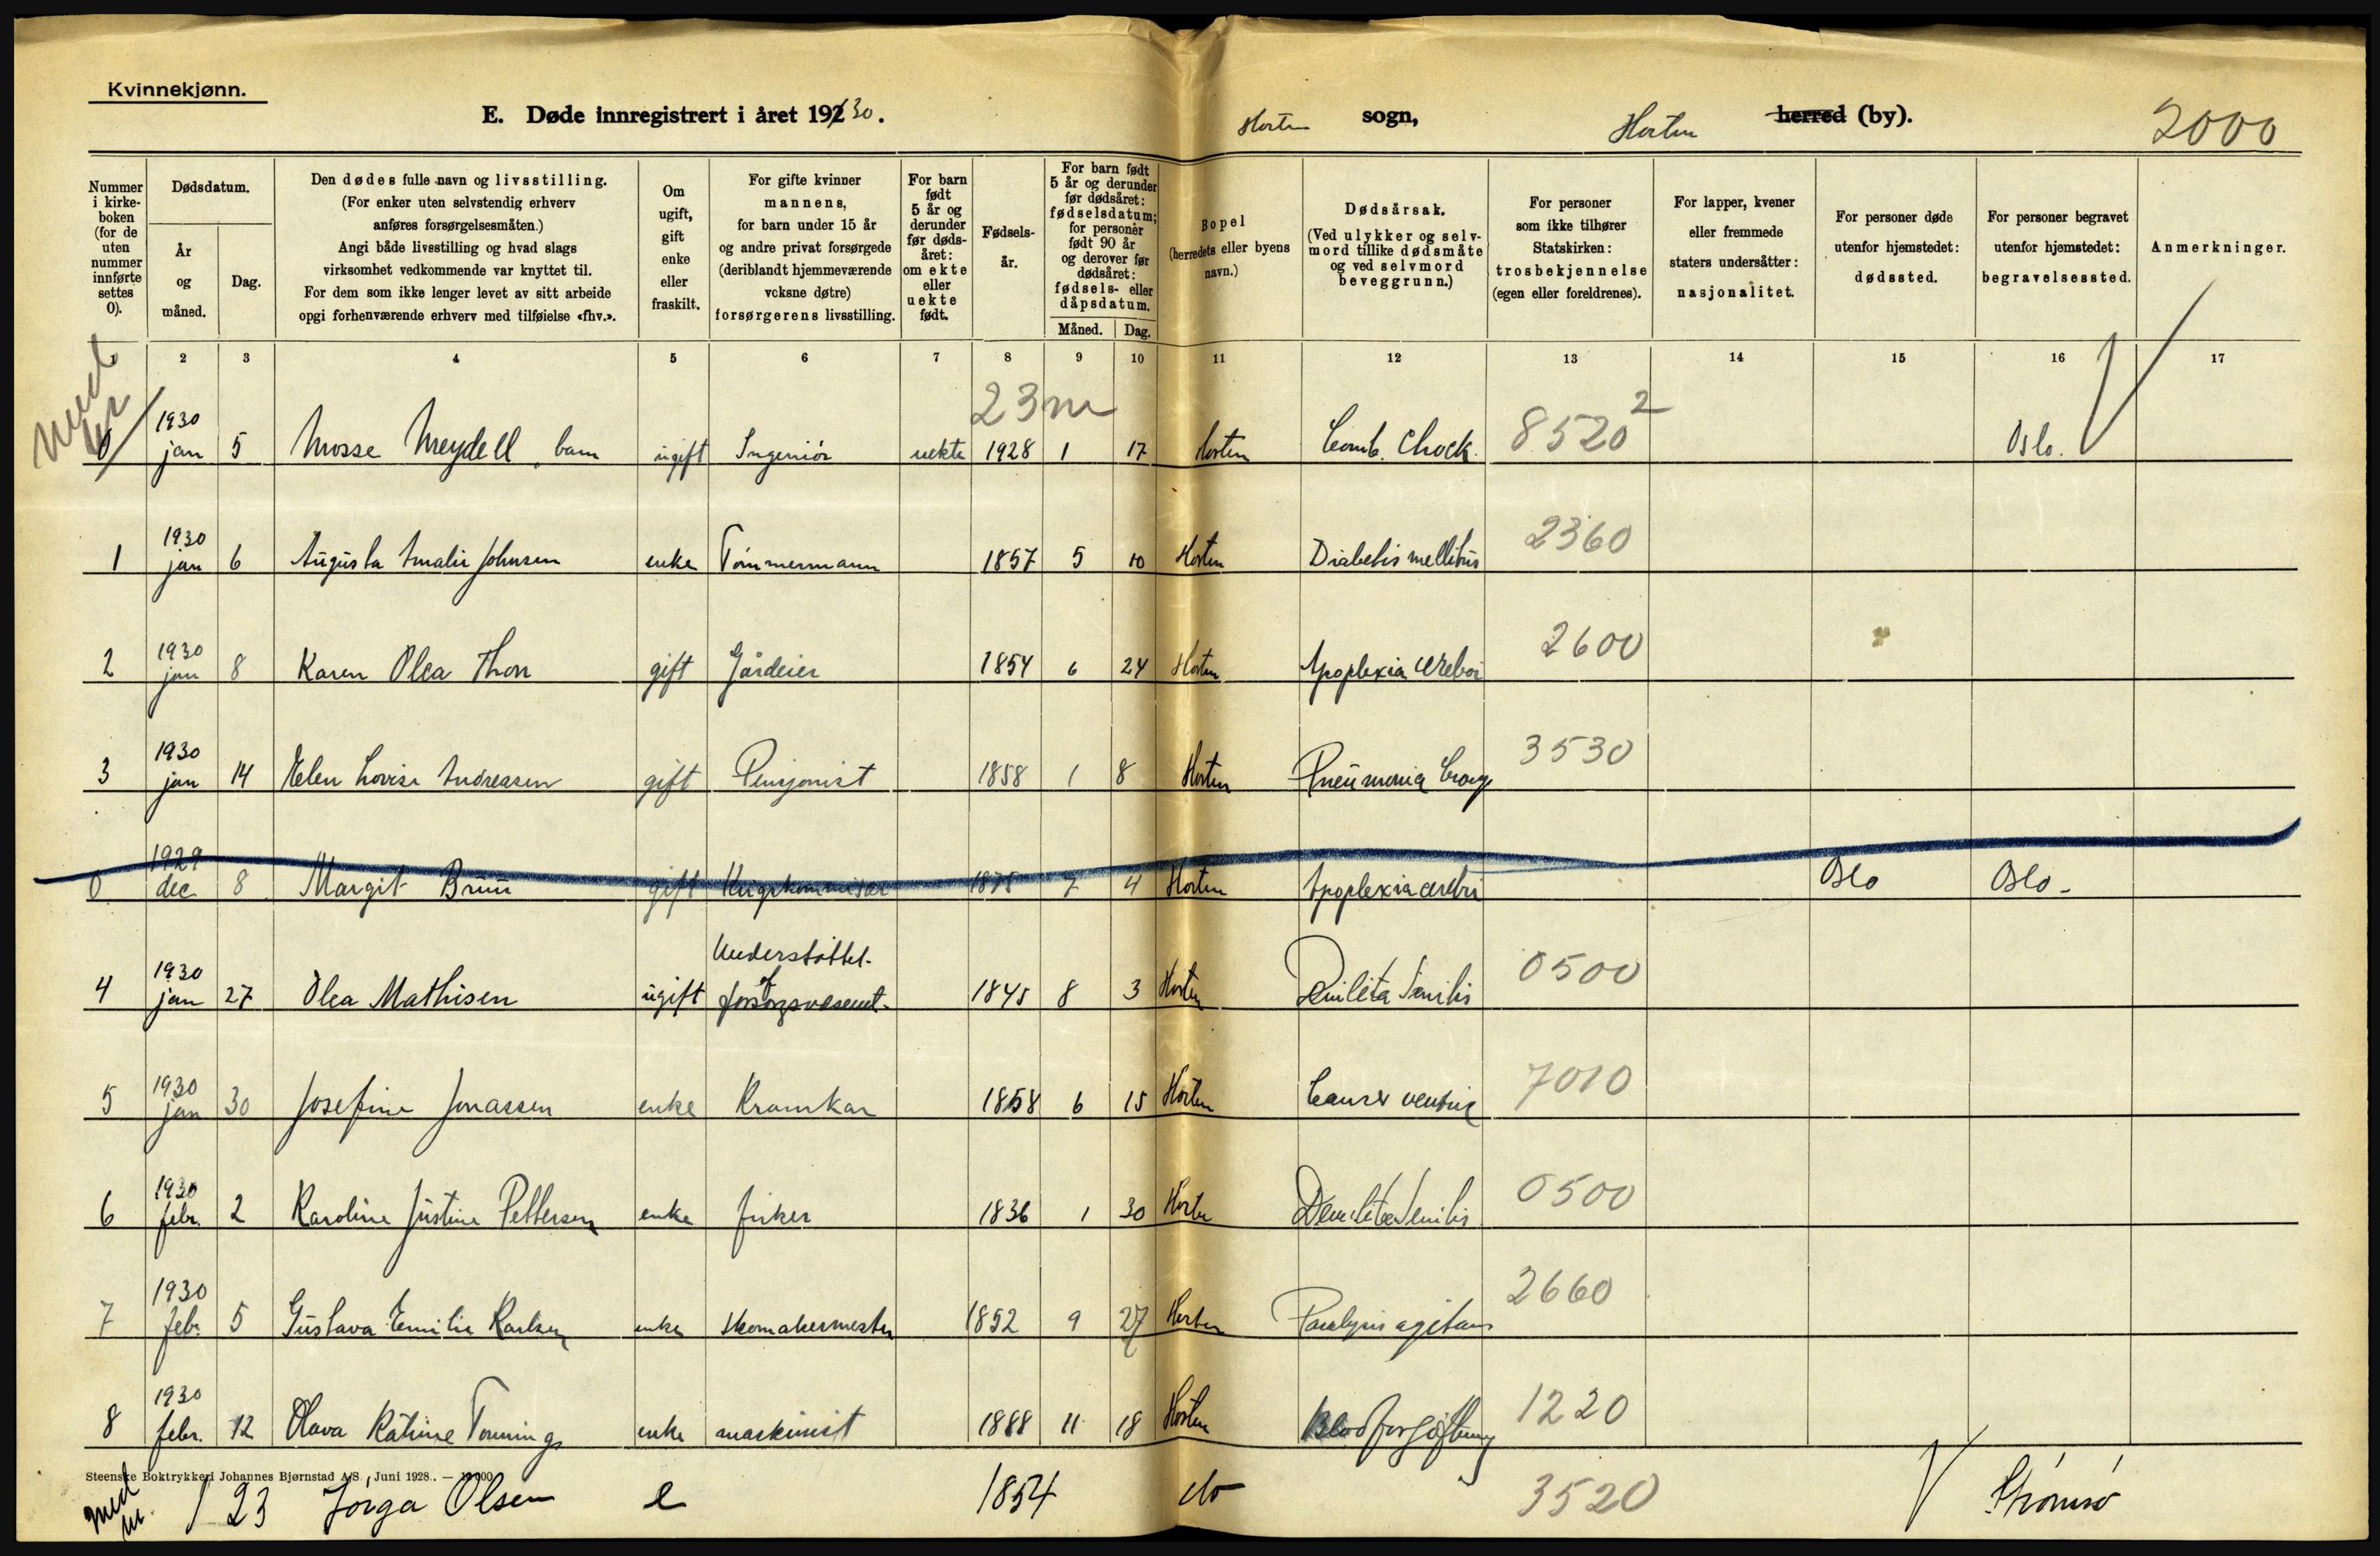 Kvinnekjønn.
E. Døde innregistrert i året 192 30.
Horten sogn, Horten herred (by). 2000
Nummer i kirke-boken (for de uten nummer innførte settes 0).
Dødsdatum.
År og måned.
Dag.
Den dødes fulle navn og livsstilling.
(For enker uten selvstendig erhverv
anføres forsørgelsesmåten.)
Angi både livsstilling og hvad slags
virksomhet vedkommende var knyttet til.
For dem som ikke lenger levet av sitt arbeide
opgi forhenværende erhverv med tilføielse «fhv.».
Om ugift, gift enke eller fraskilt.
For gifte kvinner
mannens,
for barn under 15 år
og andre privat forsørgede
(deriblandt hjemmeværende
voksne døtre)
forsørgerens livsstilling.
For barn født 5 år og derunder før døds-året: om ekte eller uekte født.
Fødsels-år.
For barn født 5 år og derunder før dødsåret: fødselsdatum; for personer født 90 år og derover før dødsåret: fødsels- eller dåpsdatum.
Måned. Dag.
Bopel
(herredets eller byens
navn.)
Dødsårsak.
(Ved ulykker og selv-
mord tillike dødsmåte
og ved selvmord
beveggrunn.)
For personer
som ikke tilhører
Statskirken:
trosbekjennelse
(egen eller foreldrenes).
For lapper, kvener
eller fremmede
staters undersåtter:
nasjonalitet.
For personer døde
utenfor hjemstedet:
dødssted.
For personer begravet
utenfor hjemstedet:
begravelsessted.
Anmerkninger.
1 2 3 4 5 6 7 8 9 10 11 12 13 14 15 16 17
med nr
23 m
0 1930 jan 5 Mosse Meydell, barn ugift Ingeniör uekte 1928 1 17 Horten Comb. Chock. 8520 2 Oslo.
1 1930 jan 6 Augusta Amalie Johnsen enke Tömmermann 1857 5 10 Horten Diabetis mellitus 2360
2 1930 jan 8 Karen Olea Thon gift Gårdeier 1854 6 24 Horten Apoplexia cerebri 2600
3 1930 jan 14 Elen Lovise Andreasen gift Pensjonist 1858 1 8 Horten Pneumonia Croup 3530
0 1929 dec 8 Margit Bruu gift Krigskommisær 1875 7 4 Horten Apoplexia cerebri Oslo Oslo.
4 1930 jan 27 Olea Mathisen ugift Understöttet af forsorgsvæsenet. 1845 8 3 Horten Senilis 0500
5 1930 jan 30 Josefine Jonassen enke 1858 6 15 Horten Cancer ventric 7010
6 1930 febr. 2 Karoline Justine Pettersen enke fisker 1836 1 30 Horten Senilis 0500
7 1930 febr. 5 Gustava Emilie Karlsen enke skomakermester 1852 9 27 Horten Paralysis agitans 2660
8 1930 febr. 12 Olava Katrine Tonning enke maskinist 1888 11 18 Horten Blodforgiftning 1220
Steenske Boktrykkeri Johannes Bjørnstad A/S., Juni 1928. —
med nr. 1 23 Jörga Olsen e 1854 do 3520 Strömsö